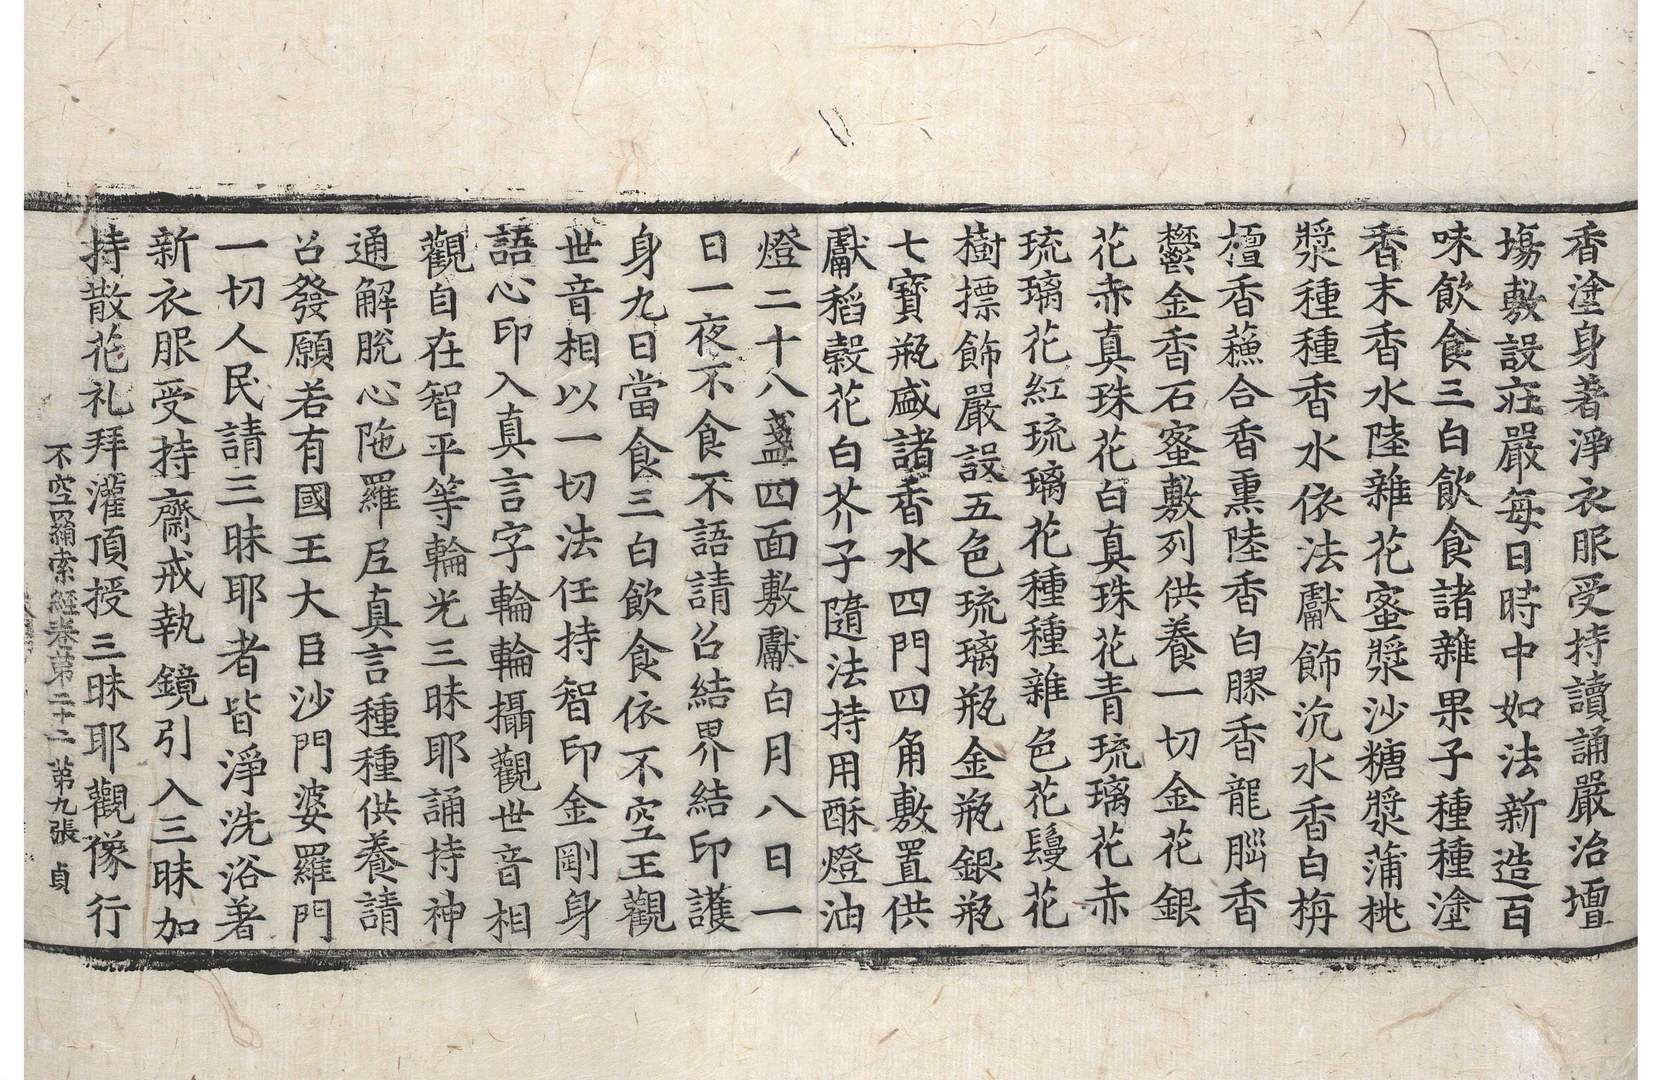 香塗身著淨衣服受持讀誦嚴治壇
塲敷設莊嚴每日時中如法新造百
味飲食三白飲食諸雜果子種種塗
香末香水陸雜花蜜漿沙糖漿蒲桃
漿種種香水依法獻飾沉水香白栴
檀香蘓合香熏陸香白膠香龍腦香
鬱金香石蜜敷列供養一切金花銀
花赤真珠花白真珠花青琉璃花赤
琉璃花紅琉璃花種種雜色花鬘花
樹摽飾嚴設五色琉璃瓶金瓶銀瓶
七寶瓶盛諸香水四門四角敷置供
獻稻穀花白芥子隨法持用酥燈油
燈二十八盞四面敷獻白月八日一
日一夜不食不語請召結界結印護
身九日當食三白飲食依不空王觀
世音相以一切法任持智印金剛身
語心印入真言字輪輪攝觀世音相
觀自在智平等輪光三昧耶誦持神
通解脫心陁羅尼真言種種供養請
召發願若有國王大臣沙門婆羅門
一切人民請三昧耶者皆淨洗浴著
新衣服受持齋戒執鏡引入三昧加
持散花礼拜灌頂授三昧耶觀像行
不空羂索經卷第二十二 第九張 貞